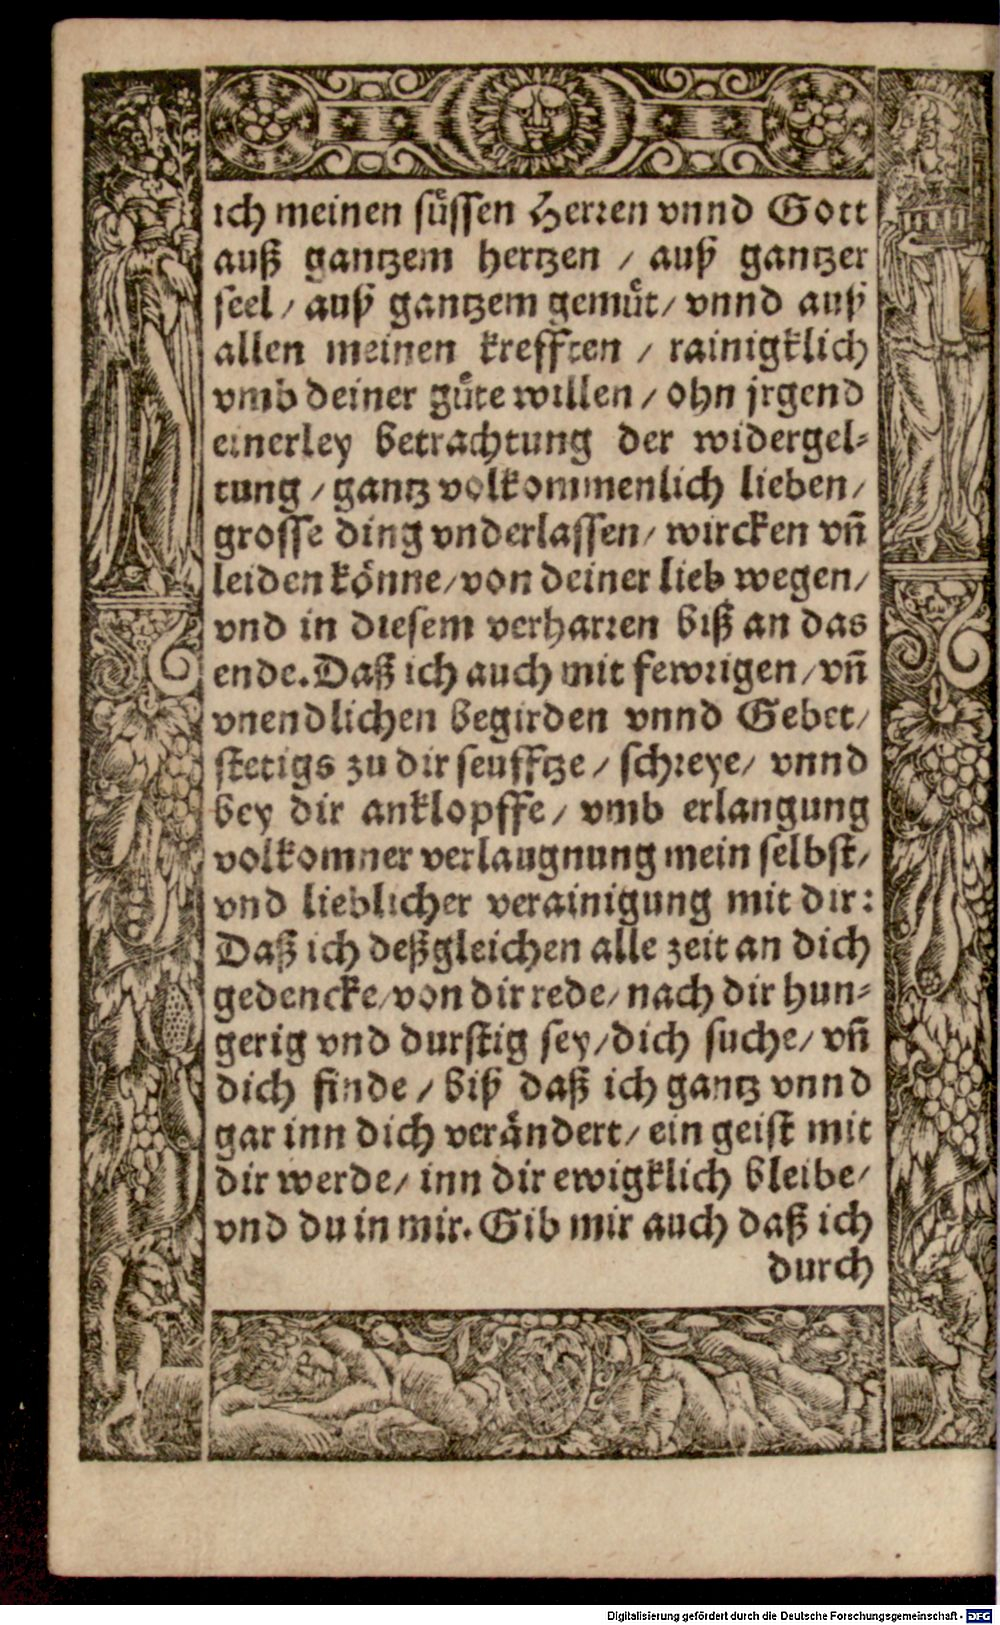 ich meinen süssen Herren vnnd Gott
auß gantzem hertzen / auß gantzer
seel / auß gantzem gemüt / vnnd auß
allen meinen krefften / rainigklich
vmb deiner güte willen / ohn jrgend
einerley betrachtung der widergel-
tung / gantz volkommenlich lieben /
grosse ding vnderlassen / wircken vñ
leiden könne / von deiner lieb wegen /
vnd in diesem verharren biß an das
ende. Daß ich auch mit fewrigen / vñ
vnendlichen begirden vnnd Gebet /
stetigs zu dir seufftze / schreye / vnnd
bey dir anklopffe / vmb erlangung
volkomner verlaugnung mein selbst /
vnd lieblicher verainigung mit dir:
Daß ich deßgleichen alle zeit an dich
gedencke / von dir rede / nach dir hun-
gerig vnd durstig sey / dich suche / vñ
dich finde / biß daß ich gantz vnnd
gar inn dich verändert / ein geist mit
dir werde / inn dir ewigklich bleibe /
vnd du in mir. Gib mir auch daß ich
durch
Digitalisierung gefördert durch die Deutsche Forschungsgemeinschaft - DFG